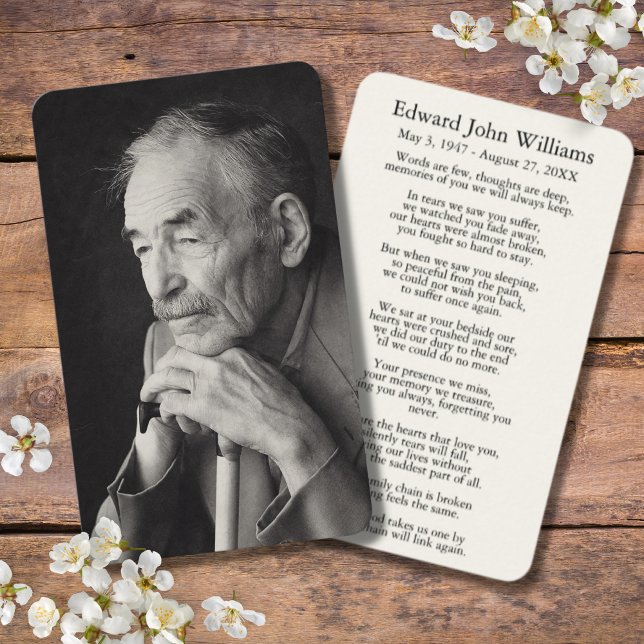 Edward John Williams
May 3, 1947 - August 27, 20XX
Words are few, thoughts are deep,
memories of you we will always keep.
In tears we saw you suffer,
we watched you fade away,
our hearts were almost broken,
you fought so hard to stay.
But when we saw you sleeping,
so peaceful from the pain,
we could not wish you back,
to suffer once again.
We sat at your bedside our
hearts were crushed and sore,
we did our duty to the end
'til we could do no more.
Your presence we miss,
your memory we treasure,
you always, forgetting you
never.
the hearts that love you,
silently tears will fall,
our lives without
the saddest part of all.
chain is broken
feels the same.
takes us one by
chain will link again.